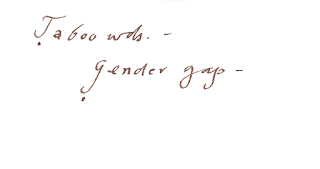 Taboo wds. -
Gender gap -